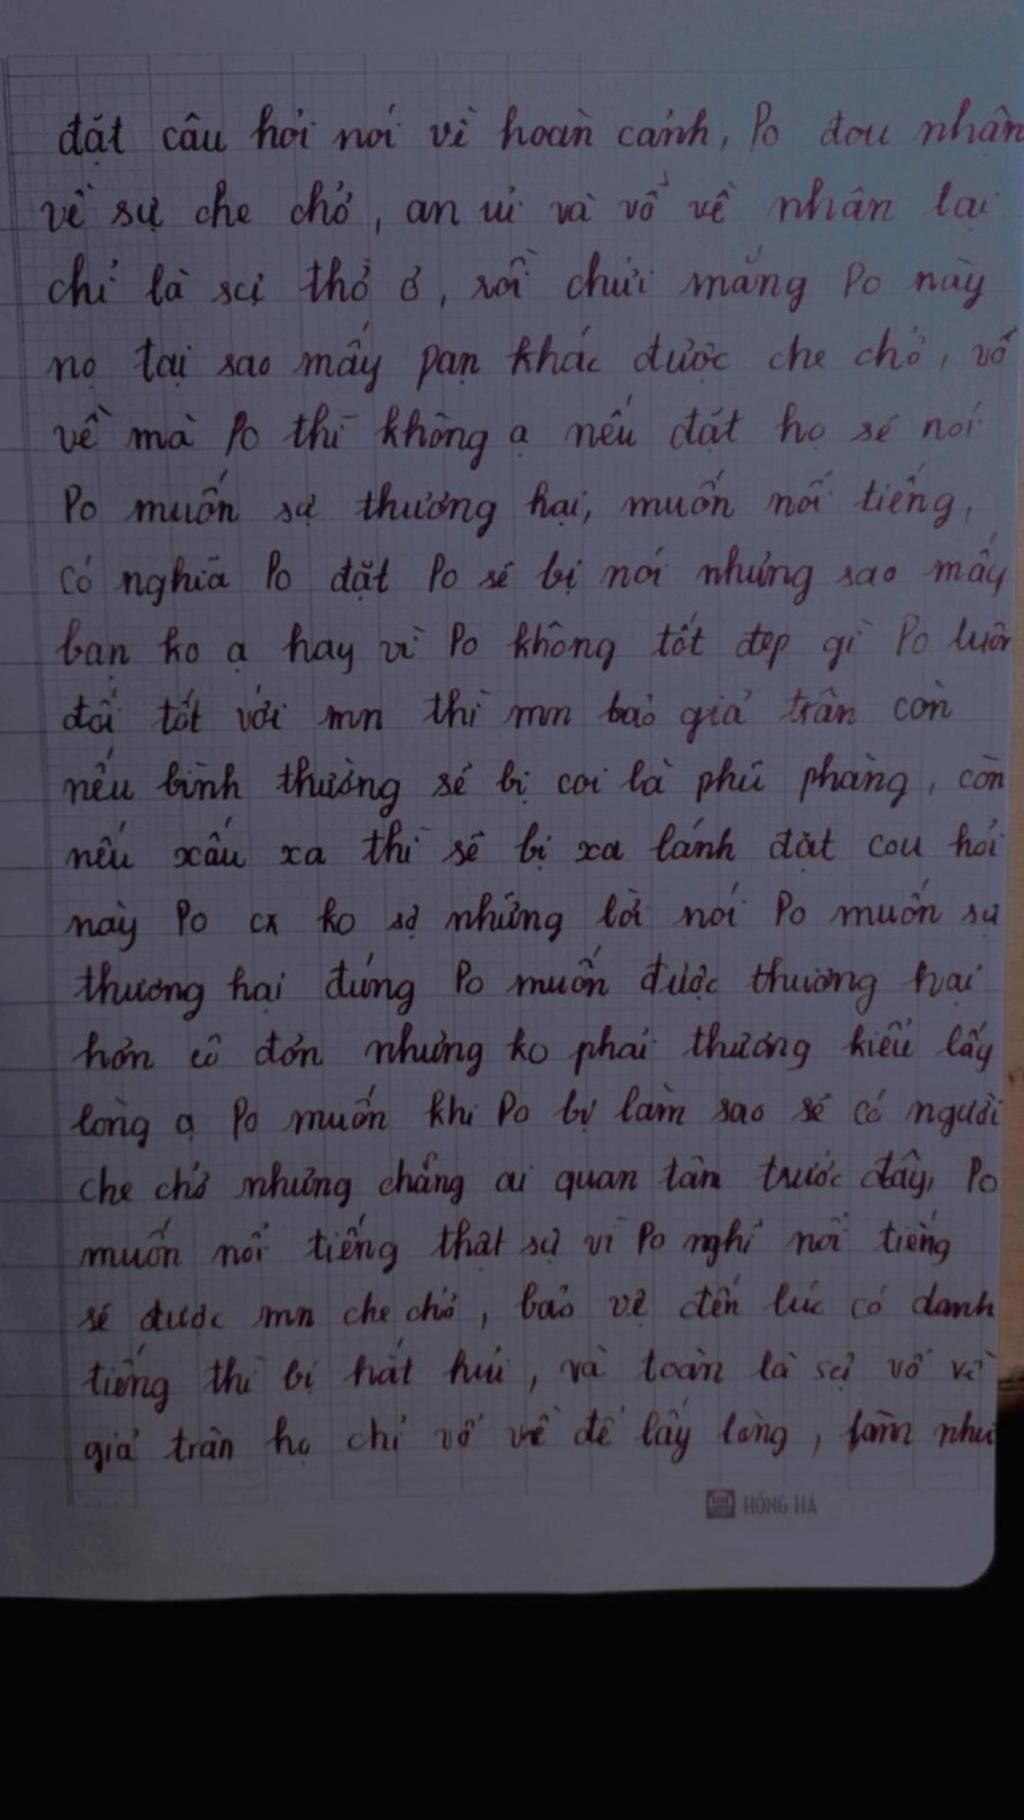 đặt câu hỏi nói về hoàn cảnh, Po đou nhận
về sự che chở, an ủi và vỗ về nhận lại
chỉ là sự thờ ơ, rồi chửi mắng Po này
nọ tại sao mấy pạn khác được che chở, vỗ
về mà Po thì không ạ nếu đặt họ sẽ nói
Po muốn sự thương hại, muốn nổi tiếng,
có nghĩa Po đặt Po sẽ bị nói nhưng sao mấy
bạn ko ạ hay vì Po không tốt đẹp gì Po luôn
đối tốt với mn thì mn bảo giả trân còn
nếu bình thường sẽ bị coi là phũ phàng, còn
nếu xấu xa thì sẽ bị xa lánh đặt cou hỏi
này Po cx ko sợ những lời nói Po muốn sự
thương hại đúng Po muốn được thương hại
hơn cô đơn nhưng ko phải thương kiểu lấy
lòng ạ Po muốn khi Po bị làm sao sẽ có người
che chở nhưng chẳng ai quan tâm trước đây, Po
muốn nổi tiếng thật sự vì Po nghĩ nổi tiếng
sẽ được mn che chở, bảo vệ đến lúc có danh
tiếng thì bị hắt hủi, và toàn là sự vỗ về
giả trân họ chỉ vỗ về để lấy lòng, làm như
HỒNG HÀ